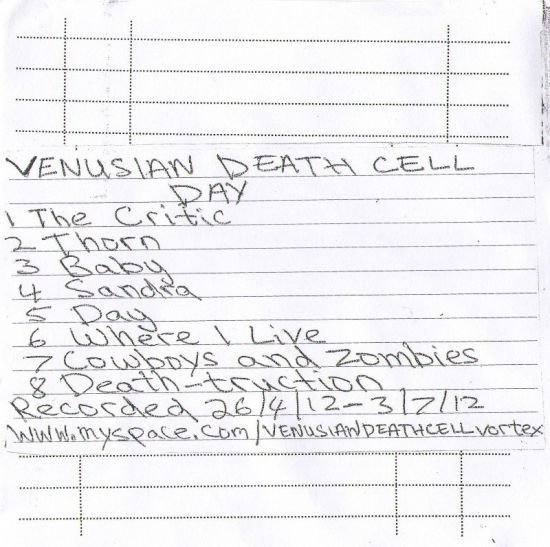 VENUSIAN DEATH CELL
DAY
1 The Critic
2 Thorn
3 Baby
4 Sandra
5 Day
6 Where I Live
7 Cowboys and Zombies
8 Death-truction
Recorded 26/4/12-3/7/12
www.myspace.com/VENUSIANDEATHCELLvortex